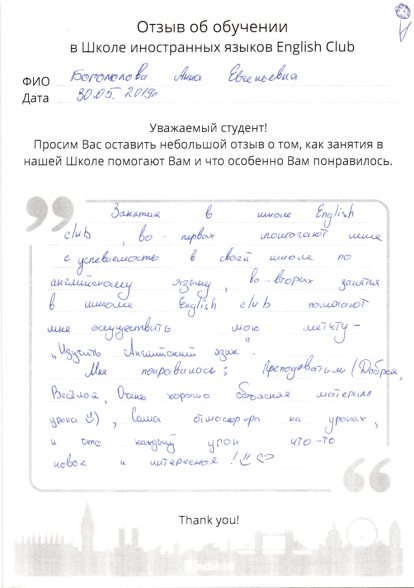 Отзыв об обучении
в Школе иностранных языков English Club
ФИО Богомолова Анна Евгеньевна
Дата 30.05.2019г
Уважаемый студент!
Просим Вас оставить небольшой отзыв о том, как занятия в
нашей Школе помогают Вам и что особенно Вам понравилось.
Занятия в школе English
club, во-первых помогают мне
с успеваемость в своей школе по
английскому языку, во-вторых занятия
в школе English club помогают
мне осуществить мою мечту-
"Изучить Английский язык".
Мне понравилось: Преподаватель (Добрая,
Весёлая, Очень хорошо объясняя материал
урока☺), Сама атмосфера на уроках,
и что каждый урок что-то
новое и интересное! ☺♡
Thank you!